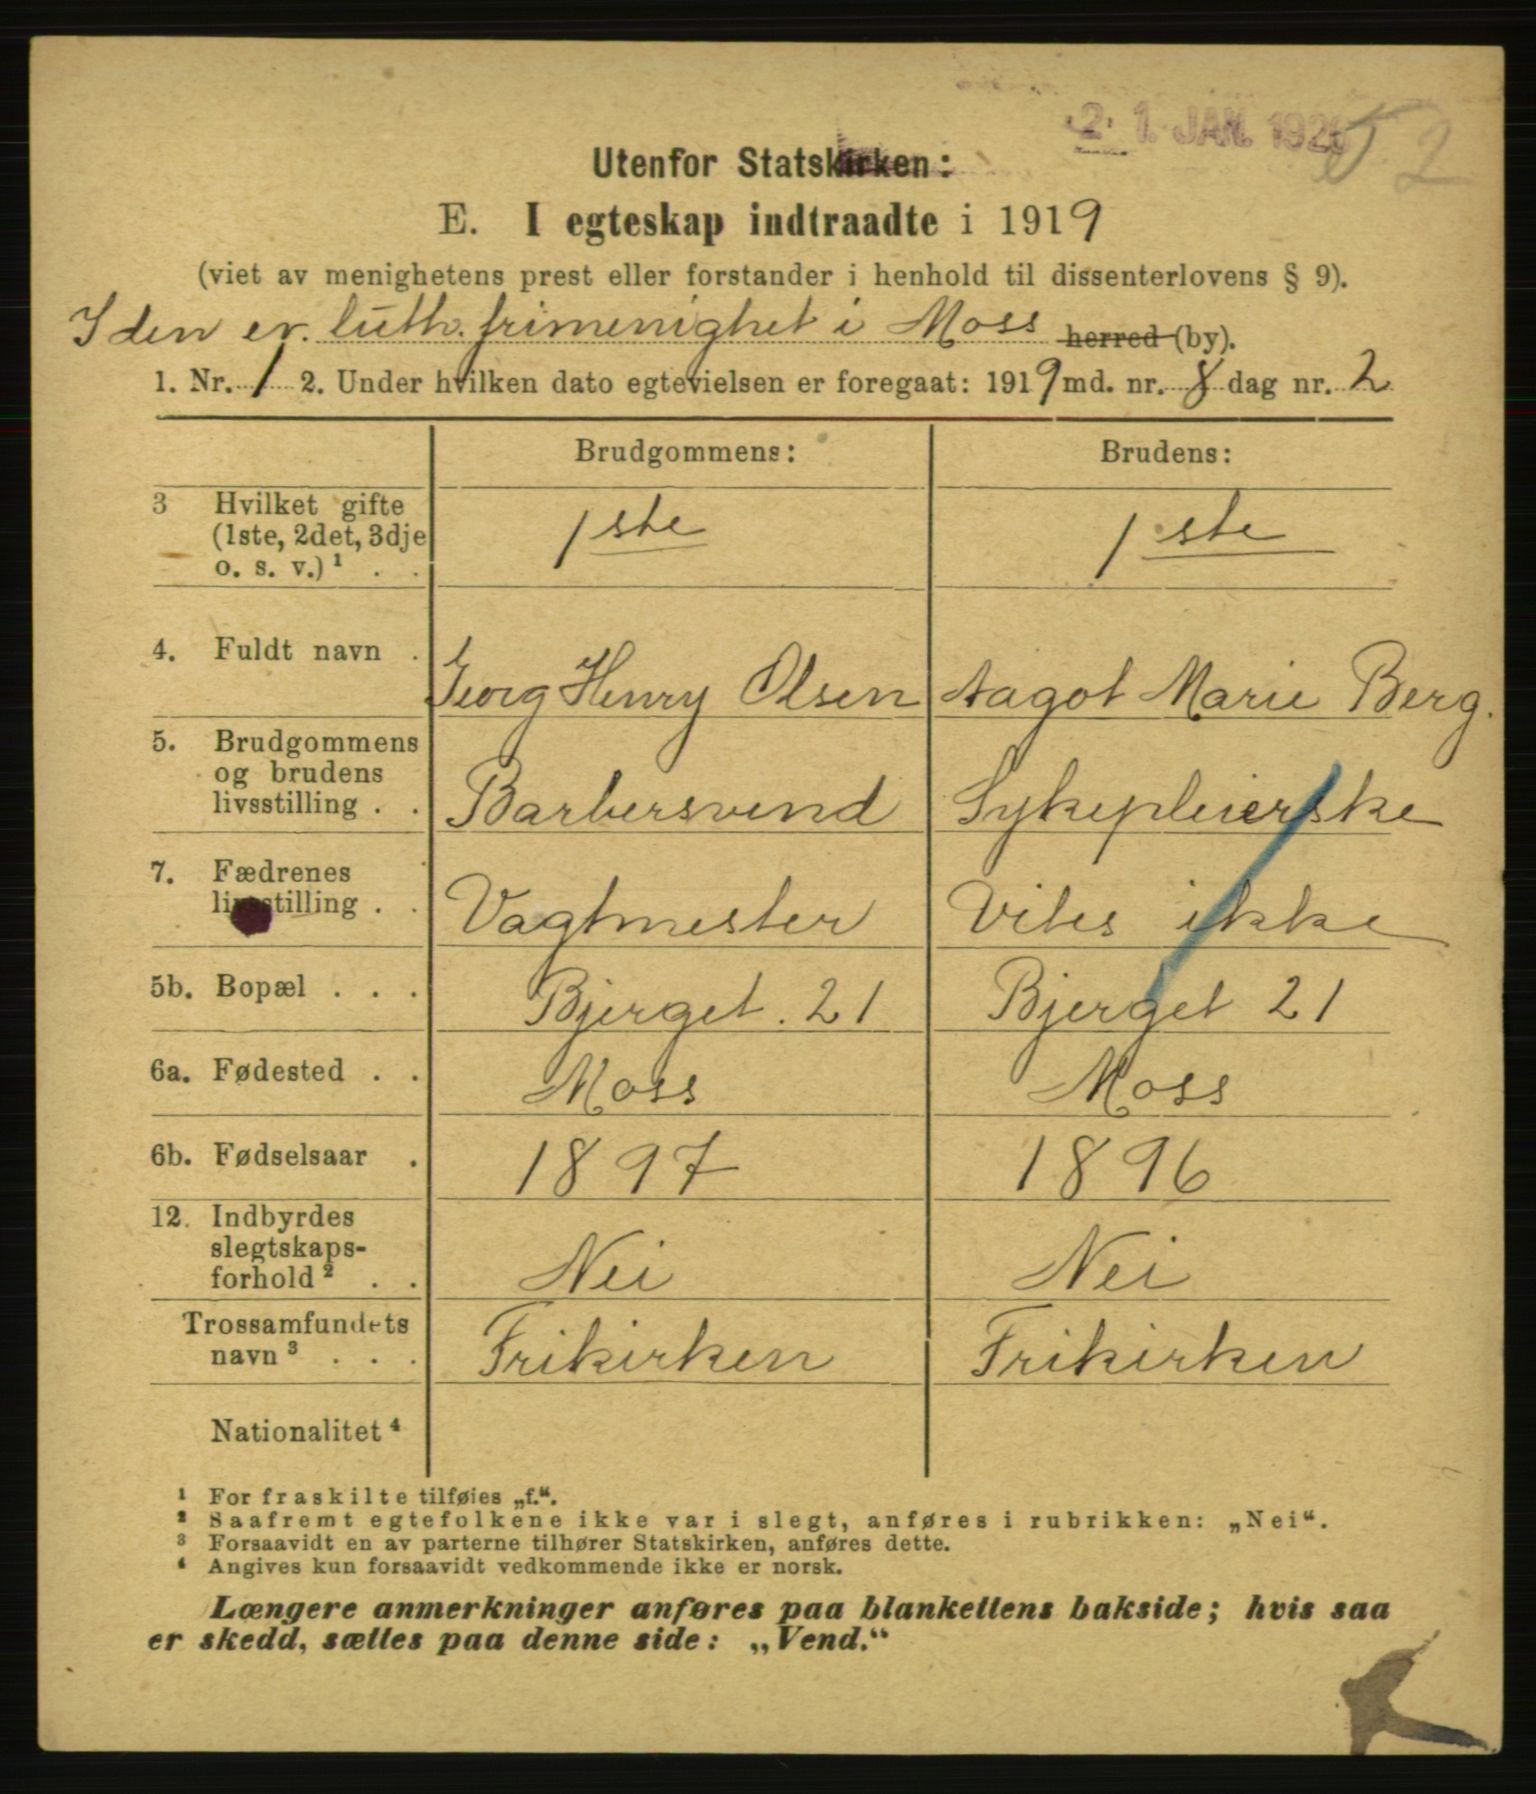 21. JAN. 1920
52
Utenfor Statskirken:
E. I egteskap indtraadte i 1919
(viet av menighetens prest eller forstander i henhold til dissenterlovens § 9).
I den ev. luth. frimenighet i Moss herred (by).
1. Nr. 1 2. Under hvilken dato egtevielsen er foregaat: 1919 md. nr. 8 dag nr. 2
Brudgommens: Brudens:
3 Hvilket gifte
(1ste, 2det, 3dje
o. s. v.)¹ . . 1ste 1ste
4. Fuldt navn . Georg Henry Olsen Aagot Marie Berg.
5. Brudgommens
og brudens
livsstilling . . Barbersvend Sykepleierske
7. Fædrenes
livsstilling . . Vagtmester Vites ikke
5b. Bopæl . . . Bjerget. 21 Bjerget 21
6a. Fødested . . Moss Moss
6b. Fødselsaar . 1897 1896
12. Indbyrdes
slegtskaps-
forhold² . . Nei Nei
Trossamfundets
navn³ . . . Frikirken Frikirken
Nationalitet⁴
¹ For fraskilte tilføies „f.“.
² Saafremt egtefolkene ikke var i slegt, anføres i rubrikken: „Nei“.
³ Forsaavidt en av parterne tilhører Statskirken, anføres dette.
⁴ Angives kun forsaavidt vedkommende ikke er norsk.
Længere anmerkninger anføres paa blankettens bakside; hvis saa
er skedd, sættes paa denne side: „Vend.“